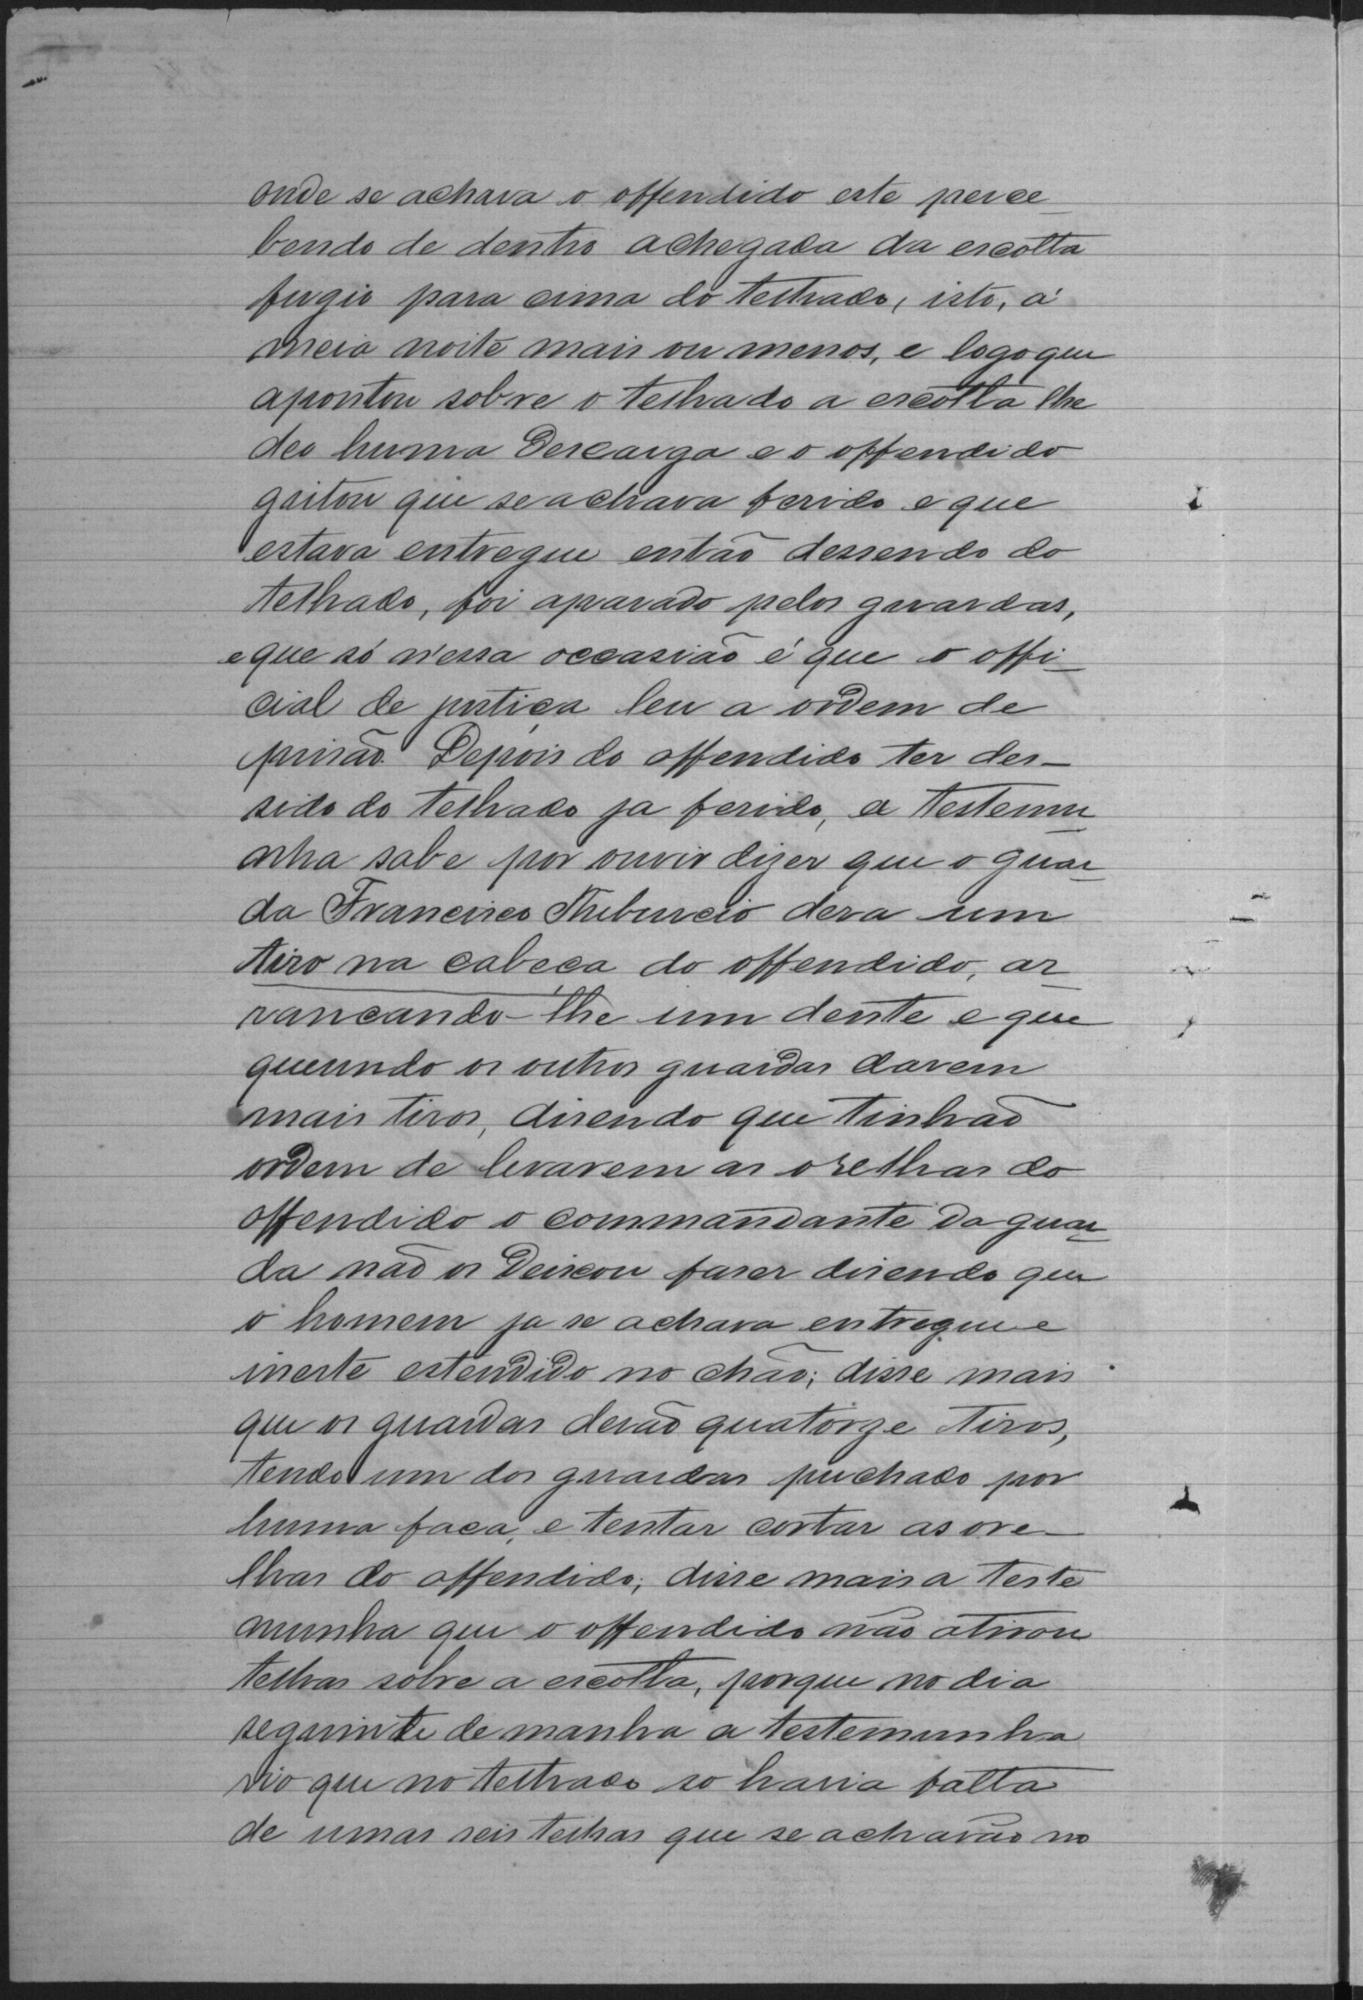 onde se achava o offendido este perce-
bendo de dentro a chegada da escolta
fugio para cima do telhado, isto, á
meia noite mais ou menos, e logo que
apontou sobre o telhado a escolta lhe
deo huma descarga e o offendido
gritou que se achava ferido e que
estava entregue então dessendo do
telhado, foi aparado pelos guardas,
e que só n'essa occasião é que o offi-
cial de justiça leu a ordem de
prisão. Depois do offendido ter des-
sido do telhado ja ferido, a testemu
nha sabe por ouvir dizer que o guar
da Francisco Thiburcio dera um
tiro na cabeça do offendido, ar
rancando-lhe um dente e que
querendo os outros guardas darem
mais tiros, disendo que tinhão
ordem de levarem as orelhas do
offendido o commandante da guar
da não os deixou faser disendo que
o homem ja se achava entregue e
inerte estendido no chão; disse mais
que os guardas derão quatorze tiros,
tendo um dos guardas puchado por
huma faca, e tentar cortar as ore-
lhas do offendido; disse mais a teste
munha que o offendido não atirou
telhas sobre a escolta, porque no dia
seguinte de manha a testemunha
vio que no telhado so havia falta
de umas seis telhas que se achavão no